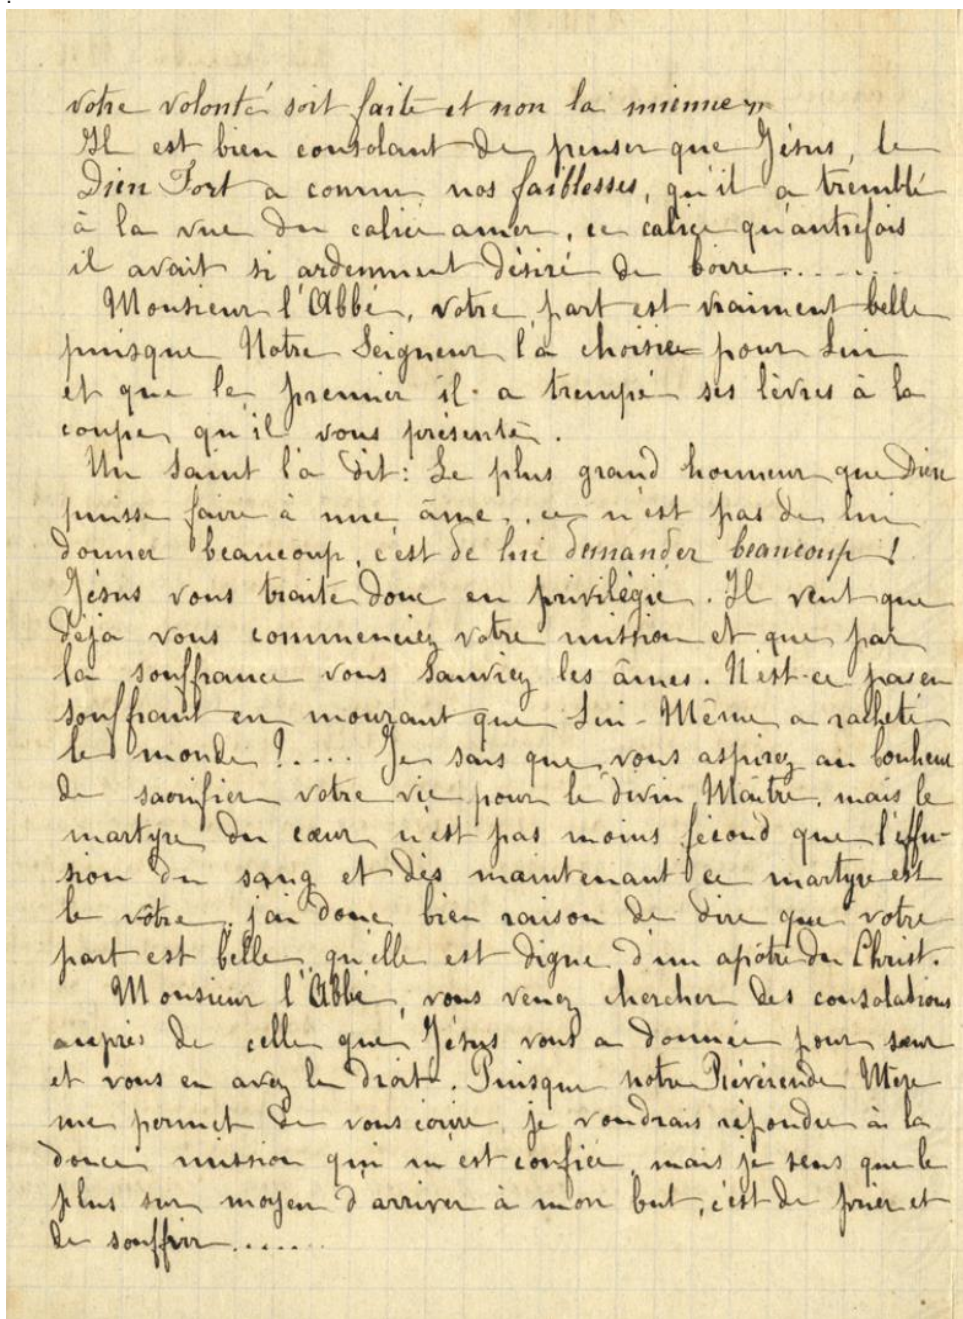 votre volonté soit faite et non la mienne »
Il est bien consolant de penser que Jésus, le
Dieu Fort a connu nos faiblesses, qu'il a tremblé
à la vue du calice amer, ce calice qu'autrefois
il avait si ardemment désiré de boire.......
Monsieur l'Abbé, votre part est vraiment belle
puisque Notre Seigneur l'a choisie pour Lui
et que le premier il a trempé ses lèvres à la
coupe qu'il vous présente.
Un Saint l'a dit : Le plus grand honneur que Dieu
puisse faire à une âme, ce n'est pas de lui
donner beaucoup, c'est de lui demander beaucoup !
Jésus vous traite donc en privilégié. Il veut que
déjà vous commenciez votre mission et que par
la souffrance vous sauviez les âmes. N'est-ce pas en
souffrant en mourant que Lui-Même a racheté
le monde ?.... Je sais que vous aspirez au bonheur
de sacrifier votre vie pour le divin Maître, mais le
martyre du cœur n'est pas moins fécond que l'effu-
sion du sang et dès maintenant ce martyre est
le vôtre, j'ai donc bien raison de dire que votre
part est belle, qu'elle est digne d'un apôtre du Christ.
Monsieur l'Abbé, vous venez chercher des consolations
auprès de celle que Jésus vous a donnée pour sœur
et vous en avez le droit. Puisque notre Révérende Mère
me permet de vous écrire, je voudrais répondre à la
douce mission qui m'est confiée, mais je sens que le
plus sur moyen d'arriver à mon but, c'est de prier et
de souffrir......